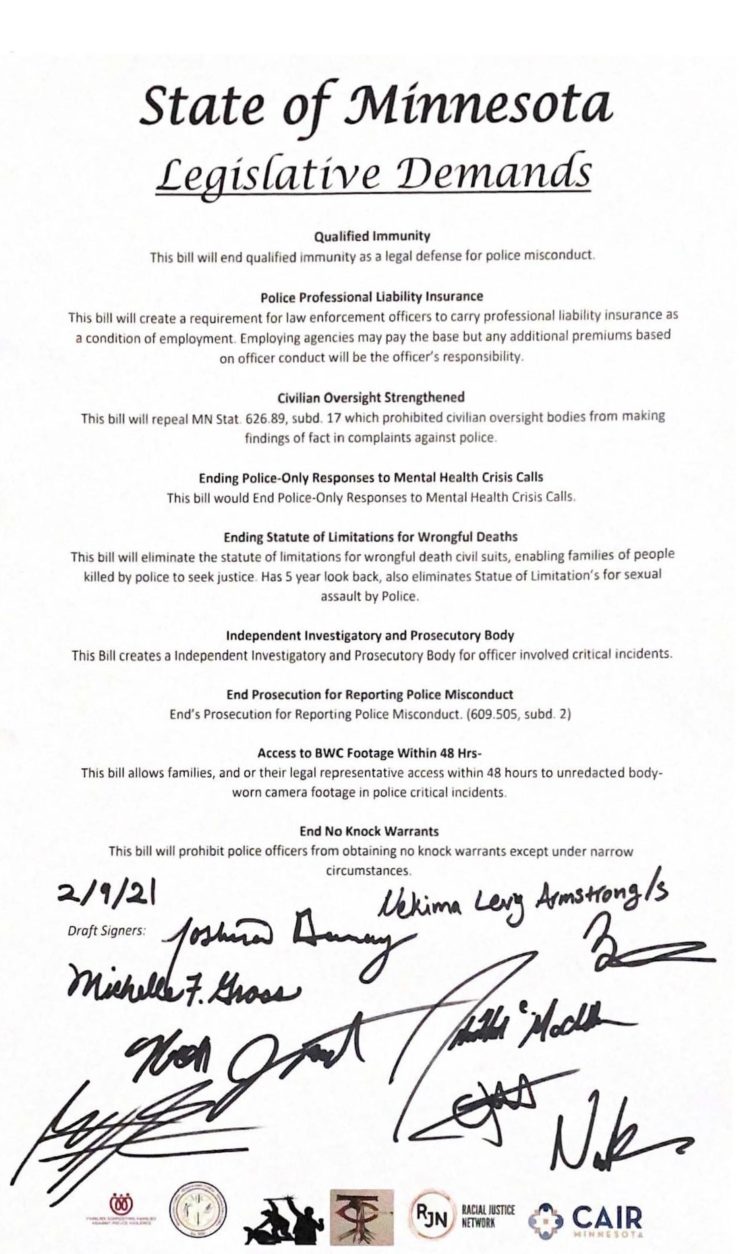 State of Minnesota
Legislative Demands
Qualified Immunity
This bill will end qualified immunity as a legal defense for police misconduct.
Police Professional Liability Insurance
This bill will create a requirement for law enforcement officers to carry professional liability insurance as
a condition of employment. Employing agencies may pay the base but any additional premiums based
on officer conduct will be the officer's responsibility.
Civilian Oversight Strengthened
This bill will repeal MN Stat. 626.89, subd. 17 which prohibited civilian oversight bodies from making
findings of fact in complaints against police.
Ending Police-Only Responses to Mental Health Crisis Calls
This bill would End Police-Only Responses to Mental Health Crisis Calls.
Ending Statute of Limitations for Wrongful Deaths
This bill will eliminate the statute of limitations for wrongful death civil suits, enabling families of people
killed by police to seek justice. Has 5 year look back, also eliminates Statue of Limitation's for sexual
assault by Police.
Independent Investigatory and Prosecutory Body
This Bill creates a Independent Investigatory and Prosecutory Body for officer involved critical incidents.
End Prosecution for Reporting Police Misconduct
End's Prosecution for Reporting Police Misconduct. (609.505, subd. 2)
Access to BWC Footage Within 48 Hrs-
This bill allows families, and or their legal representative access within 48 hours to unredacted body-
worn camera footage in police critical incidents.
End No Knock Warrants
This bill will prohibit police officers from obtaining no knock warrants except under narrow
circumstances.
2/9/21
Nekima Levy Armstrong/s
Draft Signers: Joshua
Michelle F. Gross
FAMILIES SUPPORTING FAMILIES
AGAINST POLICE VIOLENCE
RJN
RACIAL JUSTICE
NETWORK
CAIR
MINNESOTA